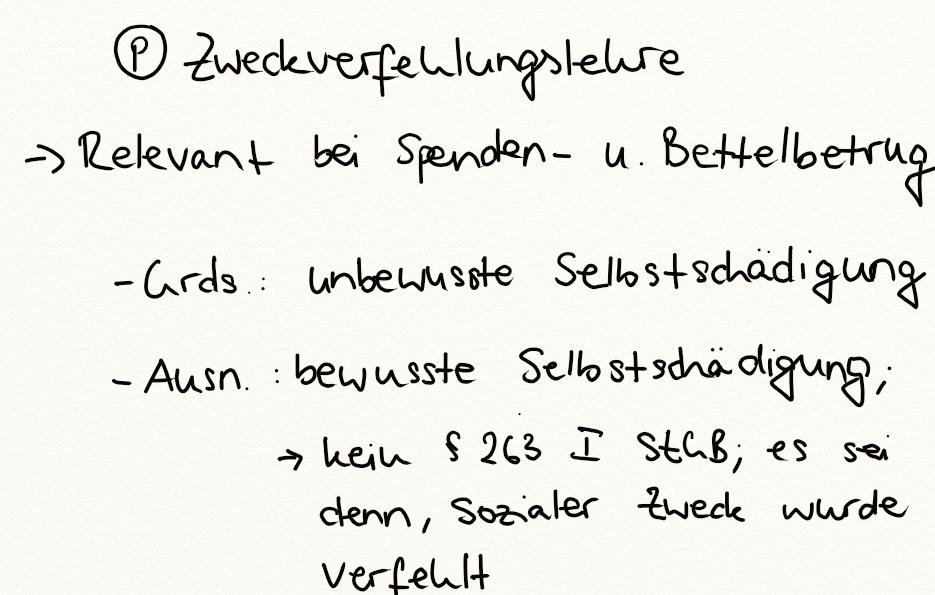 Ⓟ Zweckverfehlungslehre
→ Relevant bei Spenden- u. Bettelbetrug
- Grds.: unbewusste Selbstschädigung
- Ausn.: bewusste Selbstschädigung;
→ kein § 263 I StGB; es sei
denn, sozialer Zweck wurde
verfehlt